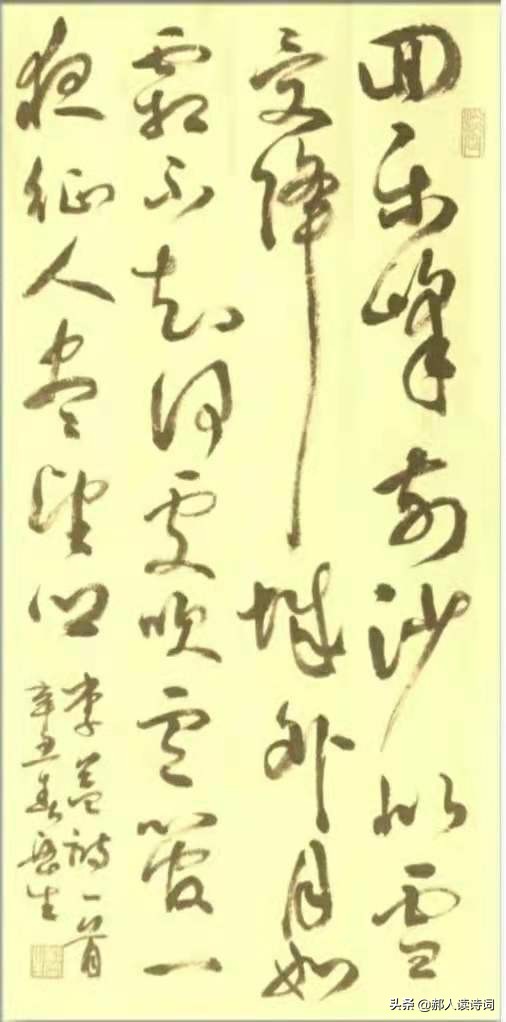 回樂峰前沙似雪
受降城外月如
霜不知何處吹蘆管一
夜征人盡望鄉
李益詩一首
辛丑春
头条 @郝人读诗词